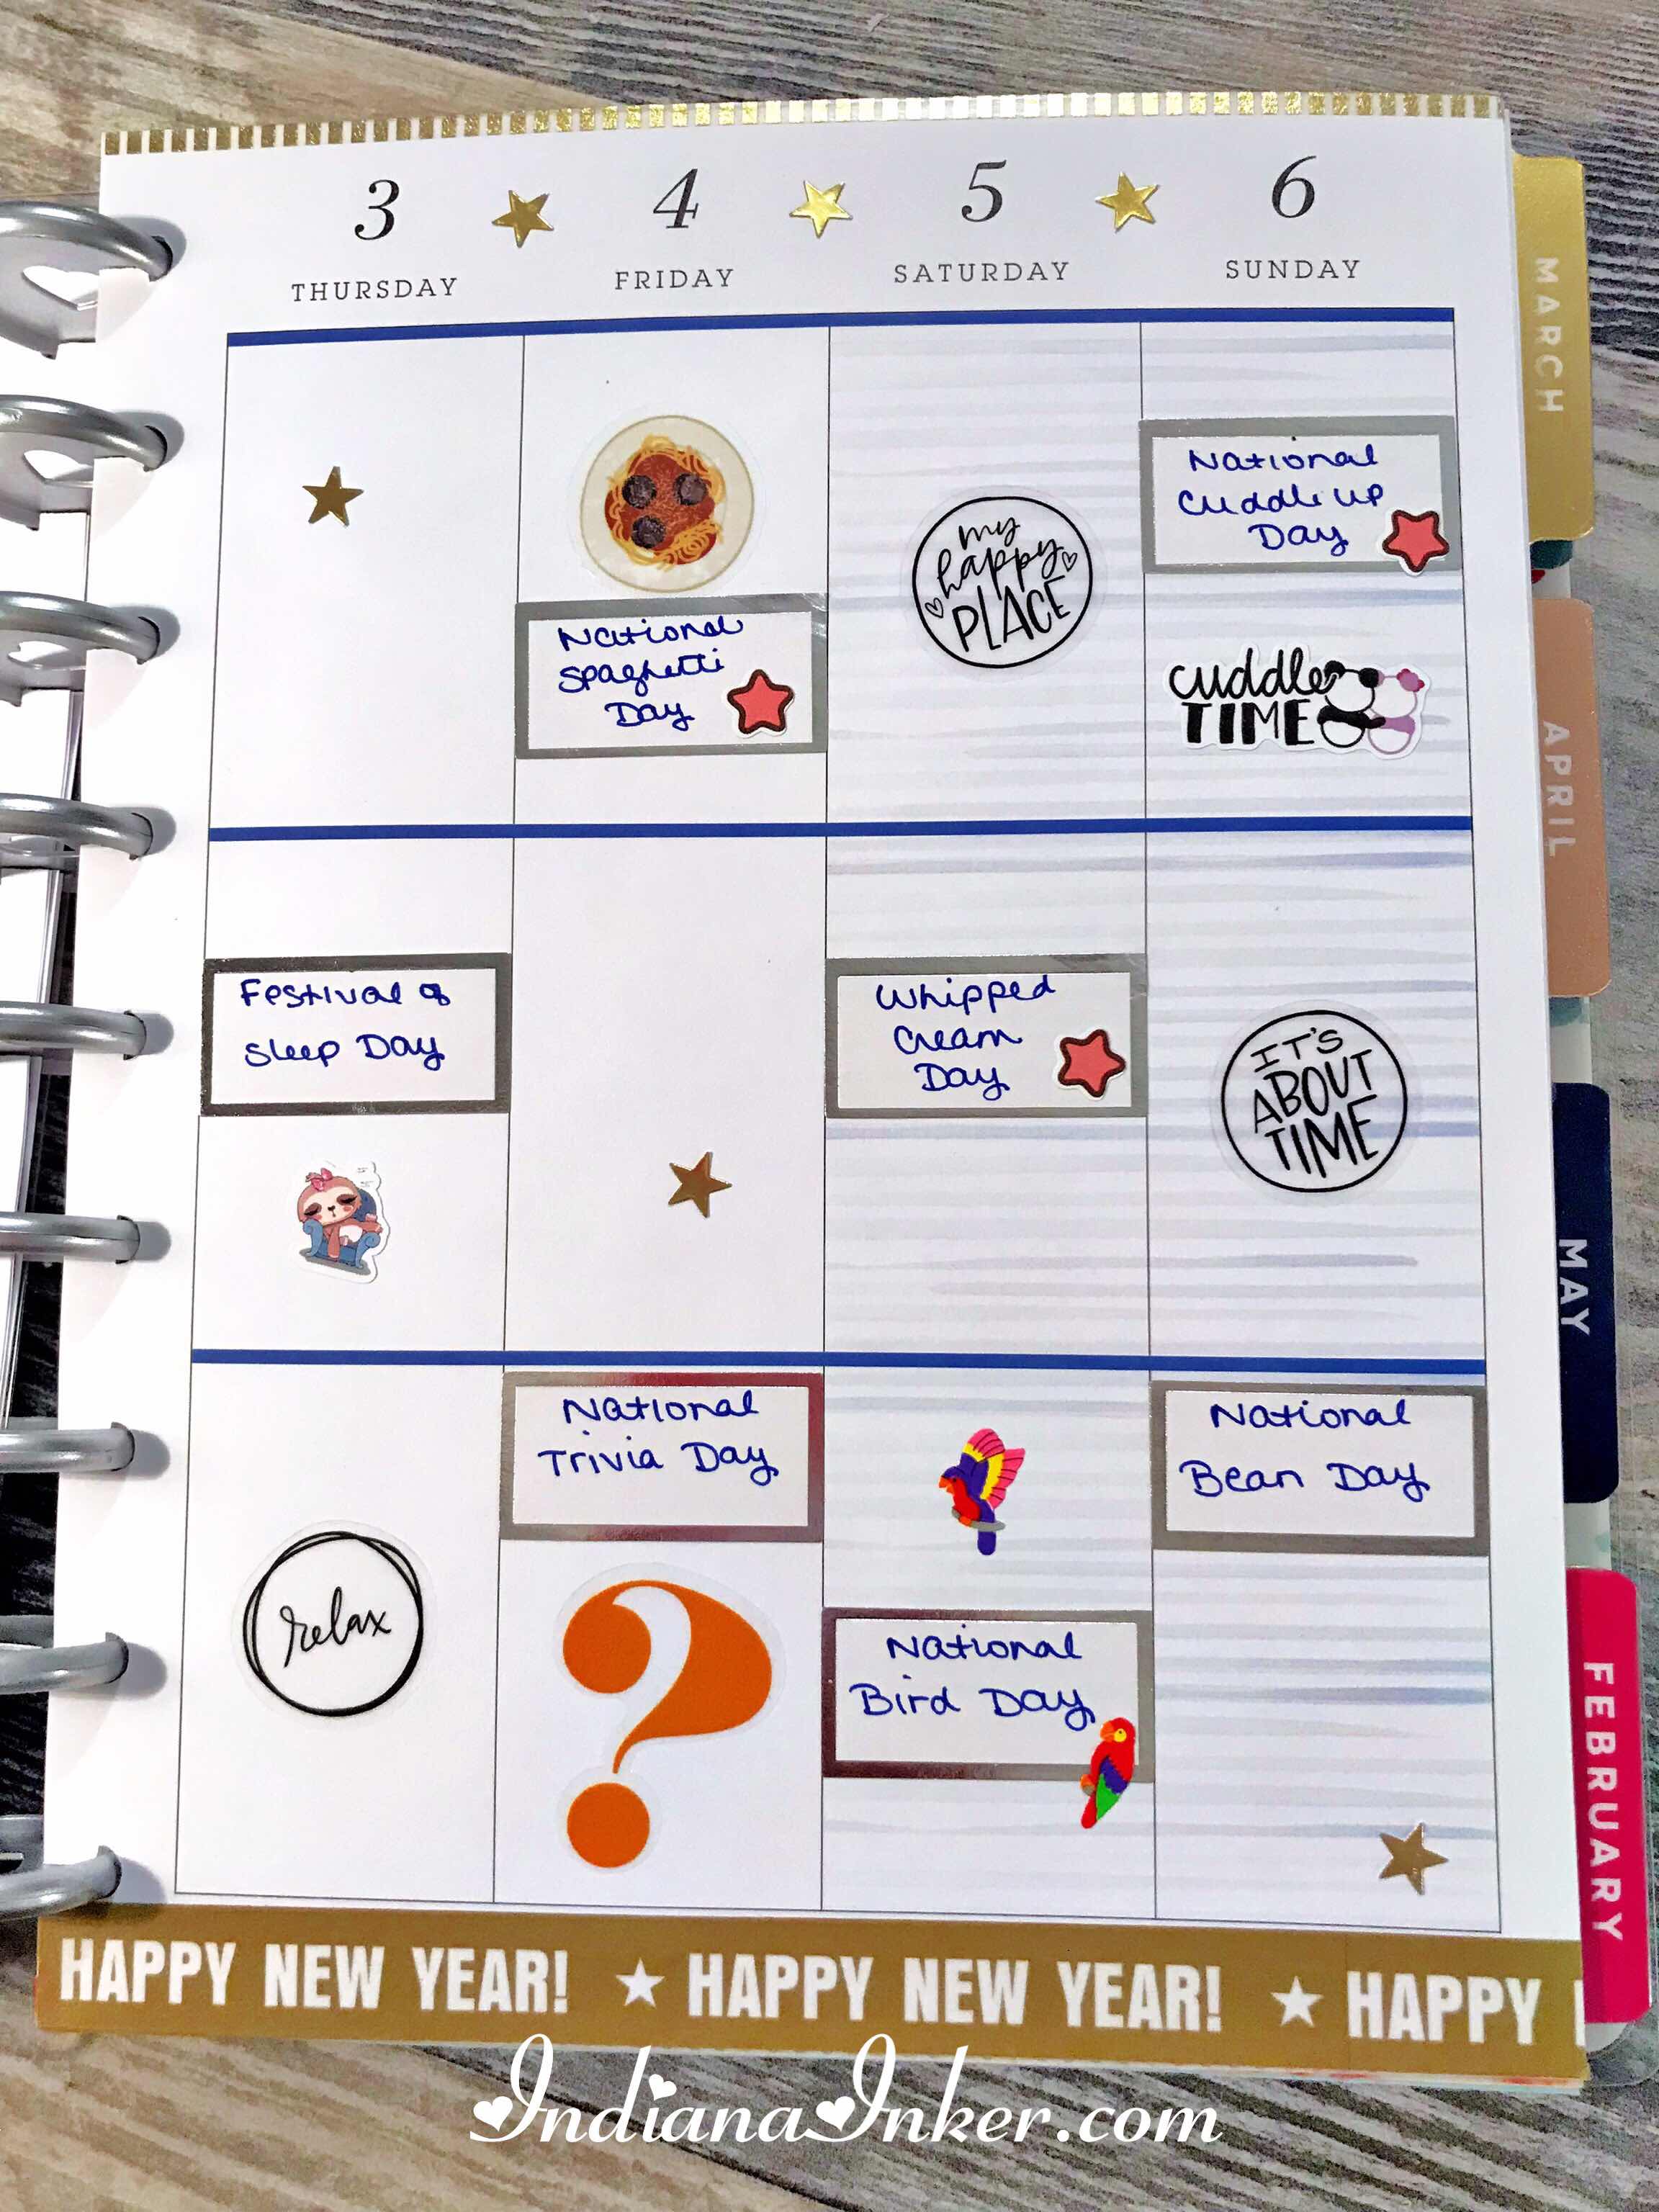 3
4
5
6
THURSDAY
FRIDAY
SATURDAY
SUNDAY
MARCH
APRIL
MAY
FEBRUARY
National
Spaghetti
Day
my
happy
PLACE
National
Cuddle up
Day
cuddle
TIME
Festival of
Sleep Day
Whipped
Cream
Day
IT'S
ABOUT
TIME
relax
National
Trivia Day
?
National
Bird Day
National
Bean Day
HAPPY NEW YEAR! ★ HAPPY NEW YEAR! ★ HAPPY
IndianaInker.com